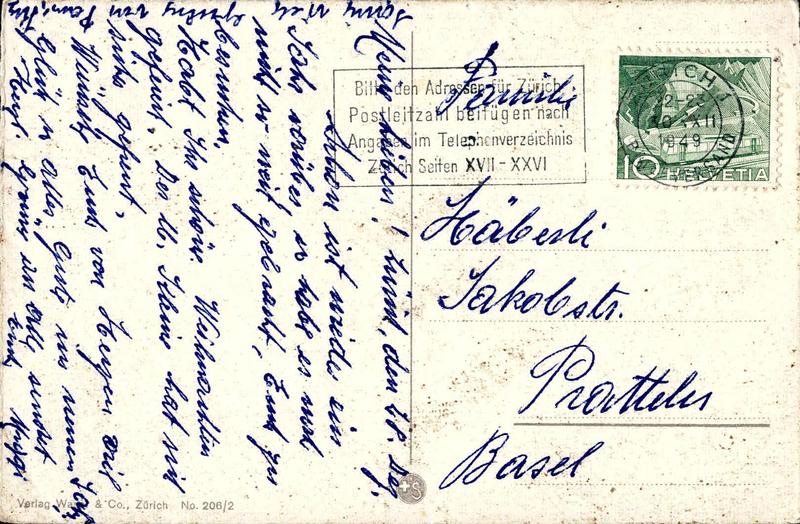 Meine Lieben! Zürich, den 28. Dez.
Schon ist wieder ein
Jahr vorüber u. habe es noch
nicht so weit gebracht, Euch zu
besuchen.
Habt Ihr schöne Weihnachten
gefeiert. Der lb. Kleine hat mit
sich gefreut.
Wünsche Euch von Herzen viel
Glück u. alles Gute im neuen Jahr
Herzl. Grüsse an alle sendet
Euch
Bitte den Adressen für Zürich
Postleitzahl beifügen nach
Angaben im Telephonverzeichnis
Zürich Seiten XVII-XXVI
ZÜRICH
1949
BRIEFVERSAND
10 HELVETIA
Familie
Häberli
Jakobstr.
Pratteln
Basel
+S
Verlag & Co., Zürich No. 206/2